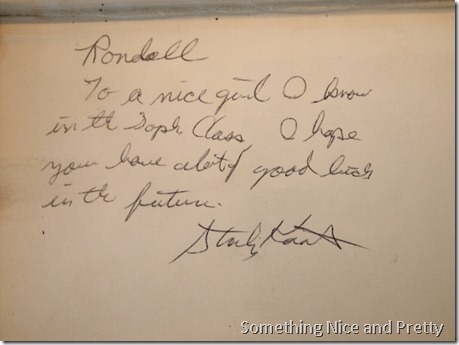 Rondell
To a nice girl I know
in the Soph Class, I hope
you have alot of good luck
in the future.
Something Nice and Pretty